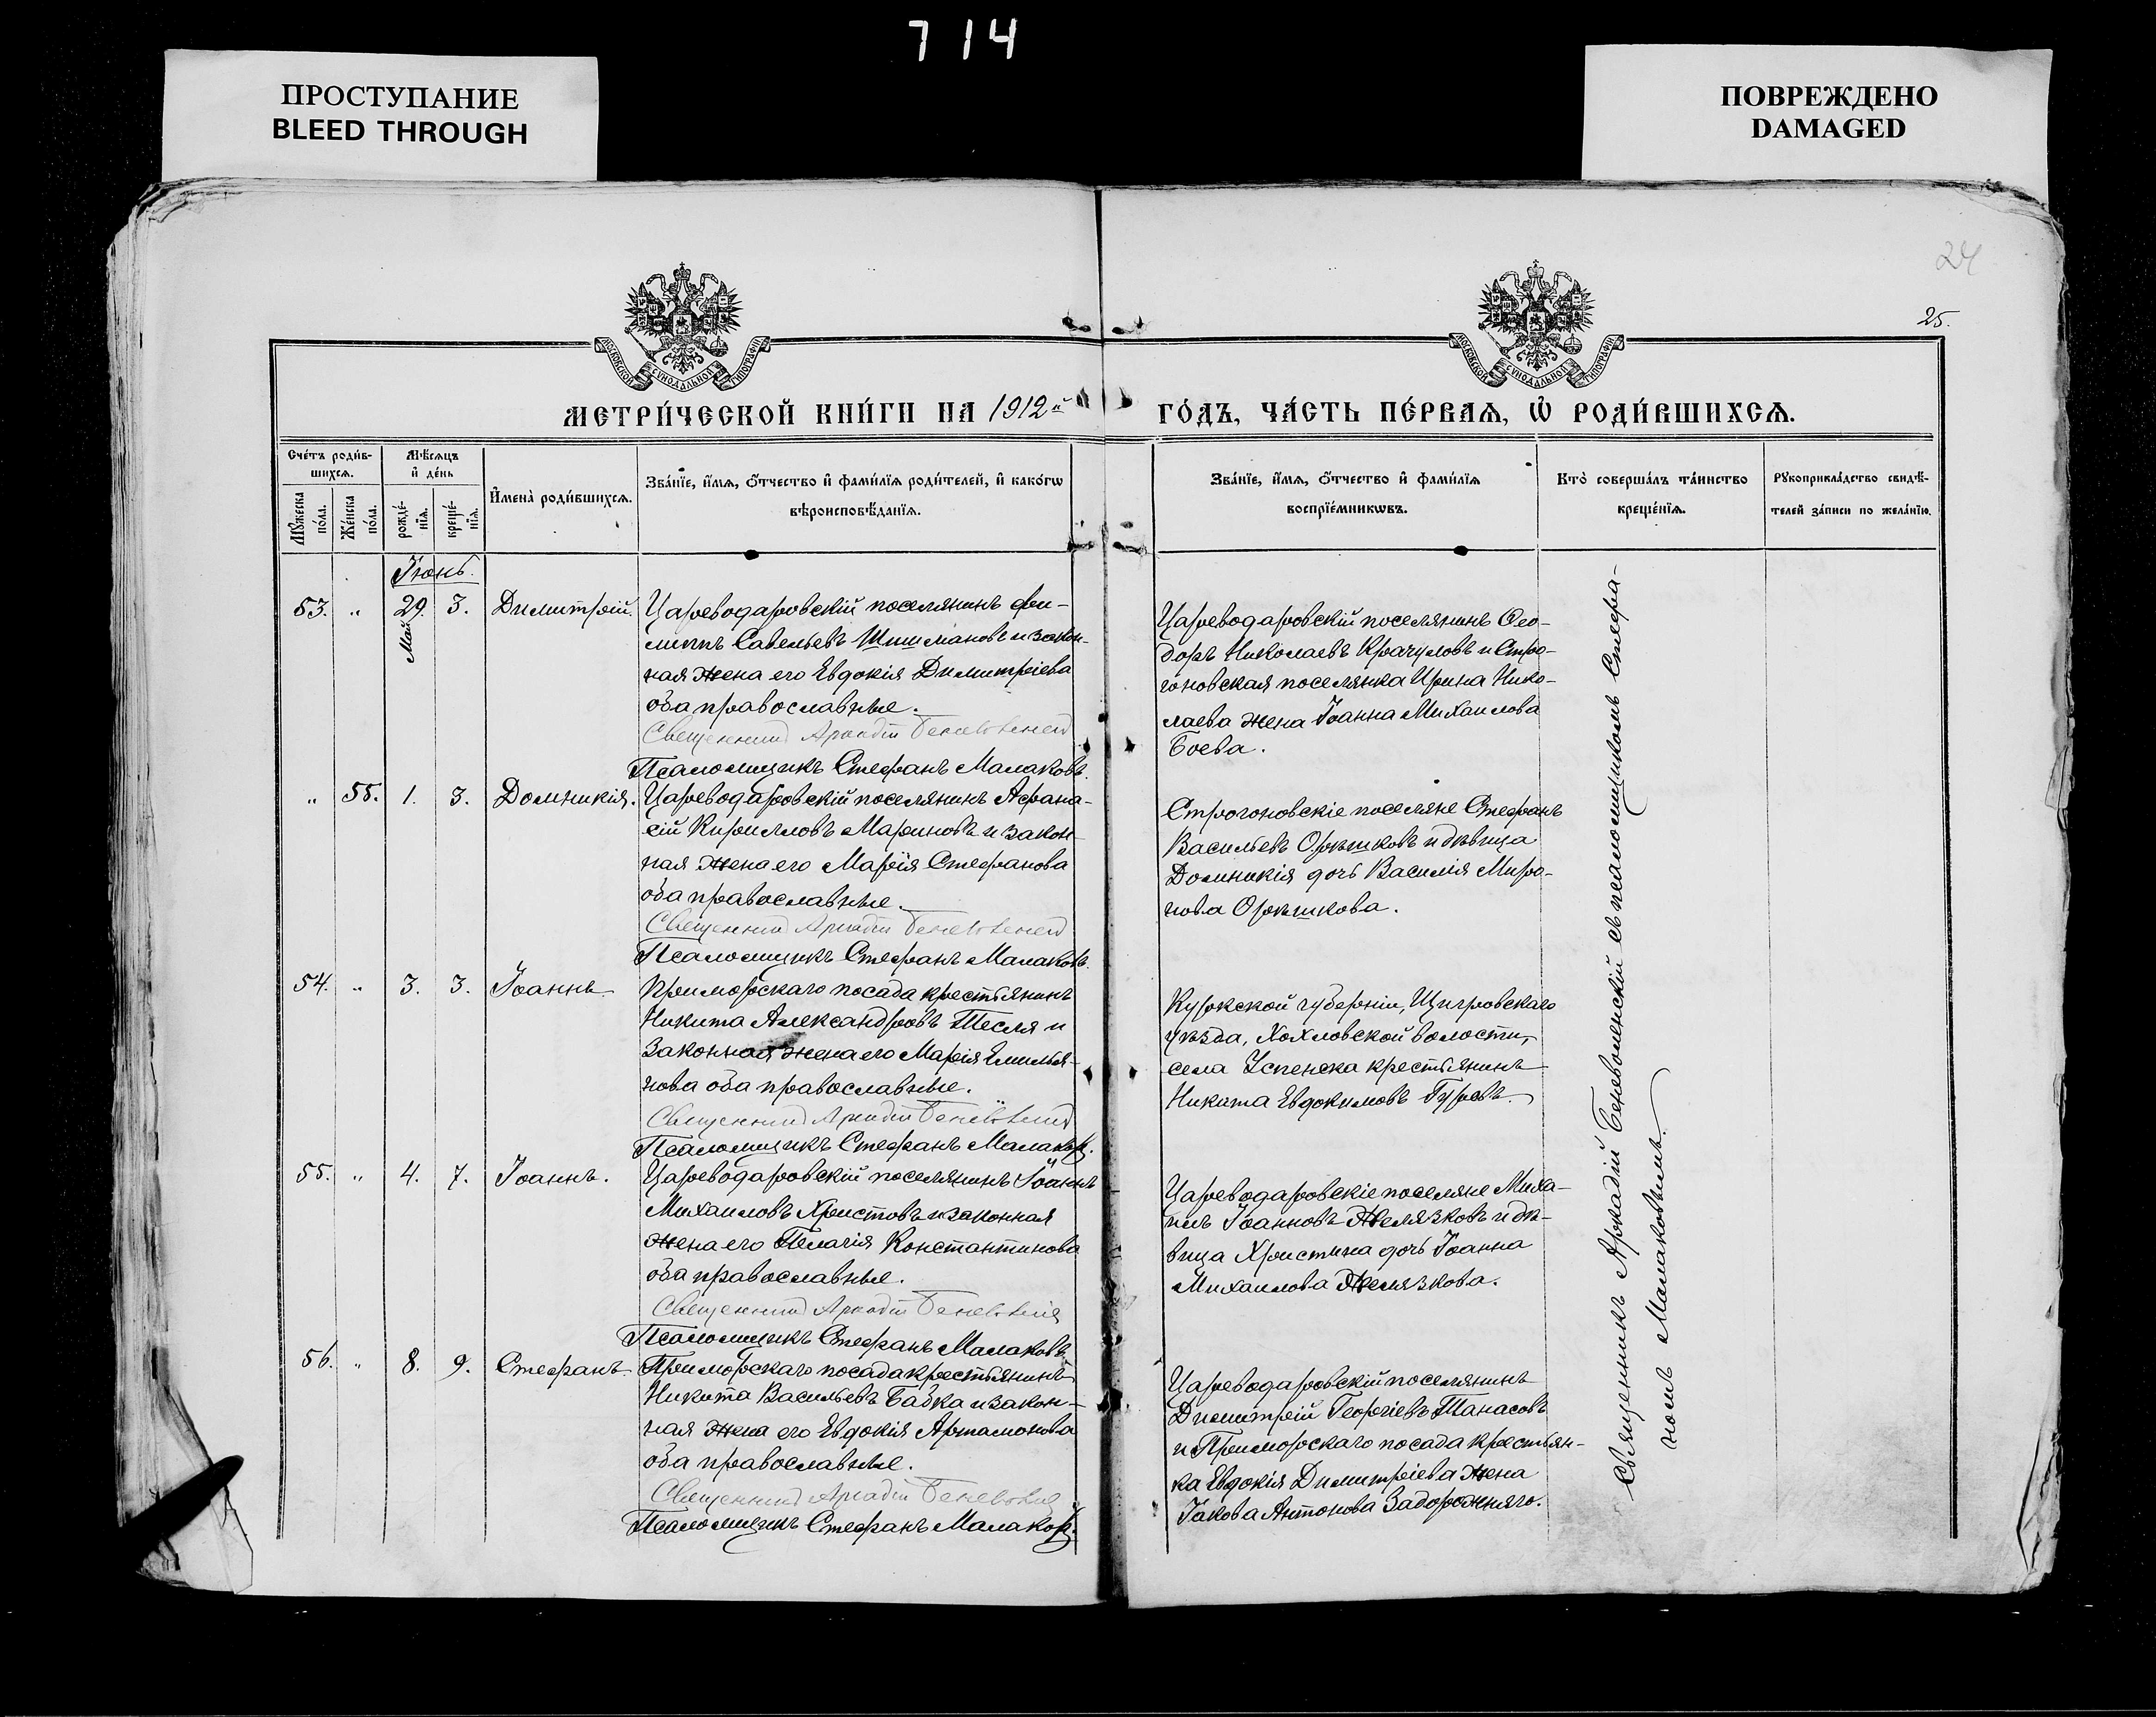 714
ПРОСТУПАНИЕ
BLEED THROUGH
ПОВРЕЖДЕНО
DAMAGED
24
25.
МОСКОВСКОЙ СѴНОДАЛЬНОЙ ТИПОГРАФІИ
МОСКОВСКОЙ СѴНОДАЛЬНОЙ ТИПОГРАФІИ
МЕТРИ́ЧЕСКОЙ КНИ́ГИ НА 1912й
ГО́ДЪ, ЧА́СТЬ ПЕ́РВАѦ, Ѡ҆ РОДИ́ВШИХСѦ.
Сче́тъ роди́в-
шихсѧ.
Мꙋ́жеска
по́ла.
Же́нска
по́ла.
Мѣ́сѧцъ
и҆ де́нь
рожде́-
нїѧ.
креще́-
нїѧ.
И҆мена̀ роди́вшихсѧ.
Зва́нїе, и҆́мѧ, ѻ҆́тчество и҆ фами́лїѧ роди́телей, и҆ како́гѡ
вѣроисповѣ́данїѧ.
Зва́нїе, и҆́мѧ, ѻ҆́тчество и҆ фами́лїѧ
воспрїе́мникѡвъ.
Кто̀ соверша́лъ та́инство
креще́нїѧ.
Рꙋкоприкла́дство свидѣ́-
телей за́писи по жела́нїю.
Іюнь.
53. " 29. Мая 3. Димитрій.
Цареводаровскій поселянинъ Фи-
липпъ Савельевъ Шишмановъ и закон-
ная жена его Евдокія Димитріева
оба православные.
Священникъ Аркадій Беневоленскій
Псаломщикъ Стефанъ Малаковъ.
Цареводаровскій поселянинъ Ѳео-
доръ Николаевъ Крачуловъ и Стро-
гоновская поселянка Ирина Нико-
лаева жена Іоанна Михаилова
Боева.
" 55. 1. 3. Домникія.
Цареводаровскій поселянинъ Афана-
сій Кирилловъ Мариновъ и закон-
ная жена его Марія Стефанова
оба православные.
Священникъ Аркадій Беневоленскій
Псаломщикъ Стефанъ Малаковъ.
Строгоновскіе поселяне Стефанъ
Васильевъ Орѣшковъ и дѣвица
Домникія дочь Василія Миро-
нова Орѣшкова.
54. " 3. 3. Іоаннъ.
Приморскаго посада крестьянинъ
Никита Александровъ Тесля и
законная жена его Марія Емилья-
нова оба православные.
Священникъ Аркадій Беневоленскій
Псаломщикъ Стефанъ Малаковъ.
Курской губерніи, Щигровскаго
уѣзда, Хохловской волости,
села Успенска крестьянинъ
Никита Евдокимовъ Гуревъ.
55. " 4. 7. Іоаннъ.
Цареводаровскій поселянинъ Іоаннъ
Михаиловъ Христовъ и законная
жена его Пелагія Константинова
оба православные.
Священникъ Аркадій Беневоленскій
Псаломщикъ Стефанъ Малаковъ.
Цареводаровскіе поселяне Миха-
илъ Іоанновъ Желязковъ и дѣ-
вица Христина дочь Іоанна
Михаилова Желязкова.
56. " 8. 9. Стефанъ.
Приморскаго посада крестьянинъ
Никита Васильевъ Бабка и закон-
ная жена его Евдокія Артамонова
оба православные.
Священникъ Аркадій Беневоленскій
Псаломщикъ Стефанъ Малаковъ.
Цареводаровскій поселянинъ
Димитрій Георгіевъ Танасовъ
и Приморскаго посада крестьян-
ка Евдокія Димитріева жена
Іакова Антонова Задорожняго.
Священникъ Аркадій Беневоленскій съ псаломщикомъ Стефа-
номъ Малаковымъ.